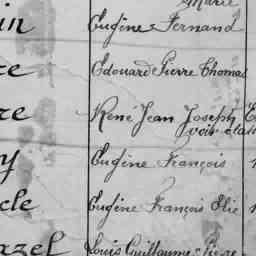 Marie
in Eugène Fernand
re Edouard Pierre Thomas
re René Jean Joseph
voir clas
y Eugène François
cle Eugène François Elie
azel Louis Guillaume Pierre